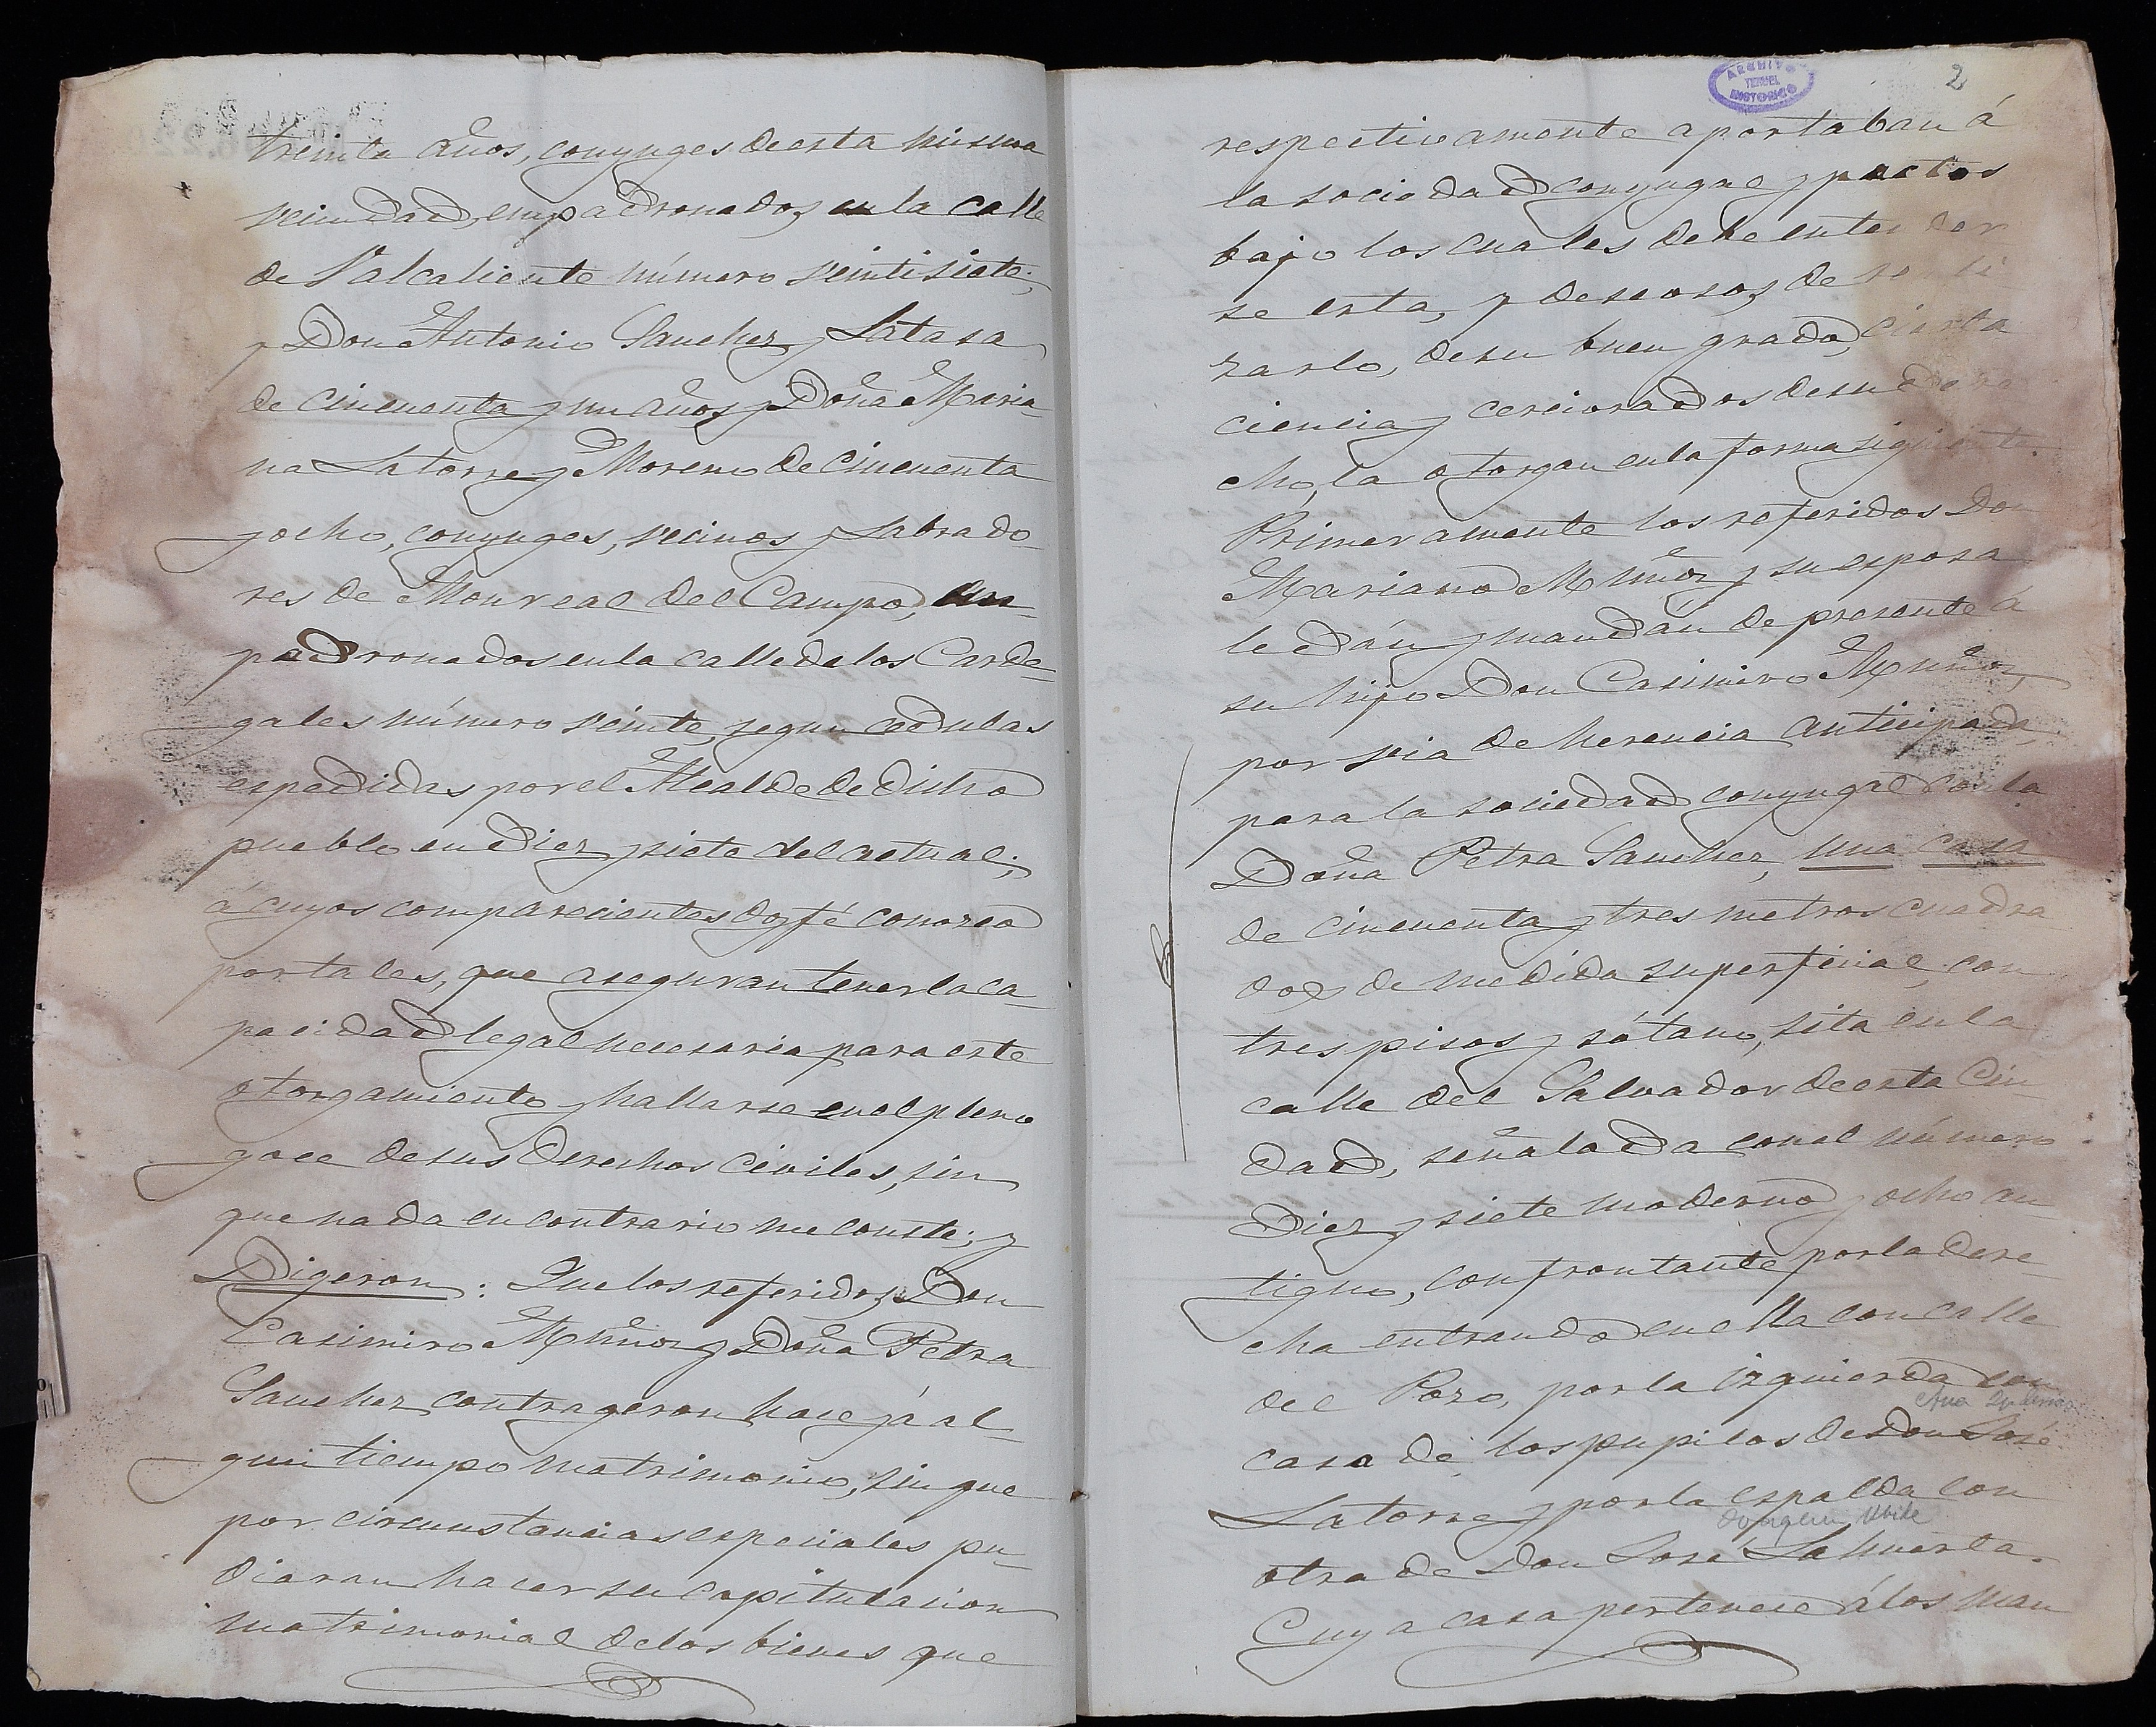 treinta años, conyuges de esta misma
vecindad, empadronados en la calle
de Valcaliente número veintisiete;
y Don Antonio Sanchez y Latasa
de cincuenta y un años y Doña Maria-
na Latorre y Moreno de cincuenta
y ocho, conyuges, vecinos y Labrado-
res de Monreal del Campo, em-
padronados en la calle de los Carde-
gales número veinte, segun cedulas
espedidas por el Alcalde de dicho
pueblo en diez y siete del actual;
á cuyos comparecientes doy fé conozco
por tales, que aseguran tener la ca-
pacidad legal necesaria para este
otorgamiento y hallarse en el pleno
goce de sus derechos civiles, sin
que nada en contrario me conste; y
Digeron: Que los referidos Don
Casimiro Muñoz y Doña Petra
Sanchez contrageron hace yá al-
gun tiempo matrimonio, sin que
por circunstancias especiales pu-
dieran hacer su capitulacion
matrimonial de los bienes que
ARCHIVO
TERUEL
HISTORICO
2
respectivamente aportaban á
la sociedad conyugal y pactos
bajo los cuales debe entender
se esta, y deseosos de reali
zarlo, de su buen grado, cierta
ciencia y cerciorados de su dere
cho, la otorgan en la forma siguiente.
Primeramente los referidos Don
Mariano Muñoz y su esposa
le dán y mandán de presente á
su hijo Don Casimiro Muñoz,
por via de herencia anticipada,
para la sociedad conyugal con la
Doña Petra Sanchez, una casa
de cincuenta y tres metros cuadra
dos de medida superficial, con
tres pisos y sótano, sita en la
calle del Salvador de esta Ciu-
dad, señalada con el número
diez y siete moderno y ocho an
tiguo, confrontante por la dere-
cha entrando en ella con calle
del Pozo, por la izquierda con
Ana
casa de los pupilos de Don José
Latorre y por la espalda con
otra de Don José Lahuerta.
Cuya casa pertenece á los man